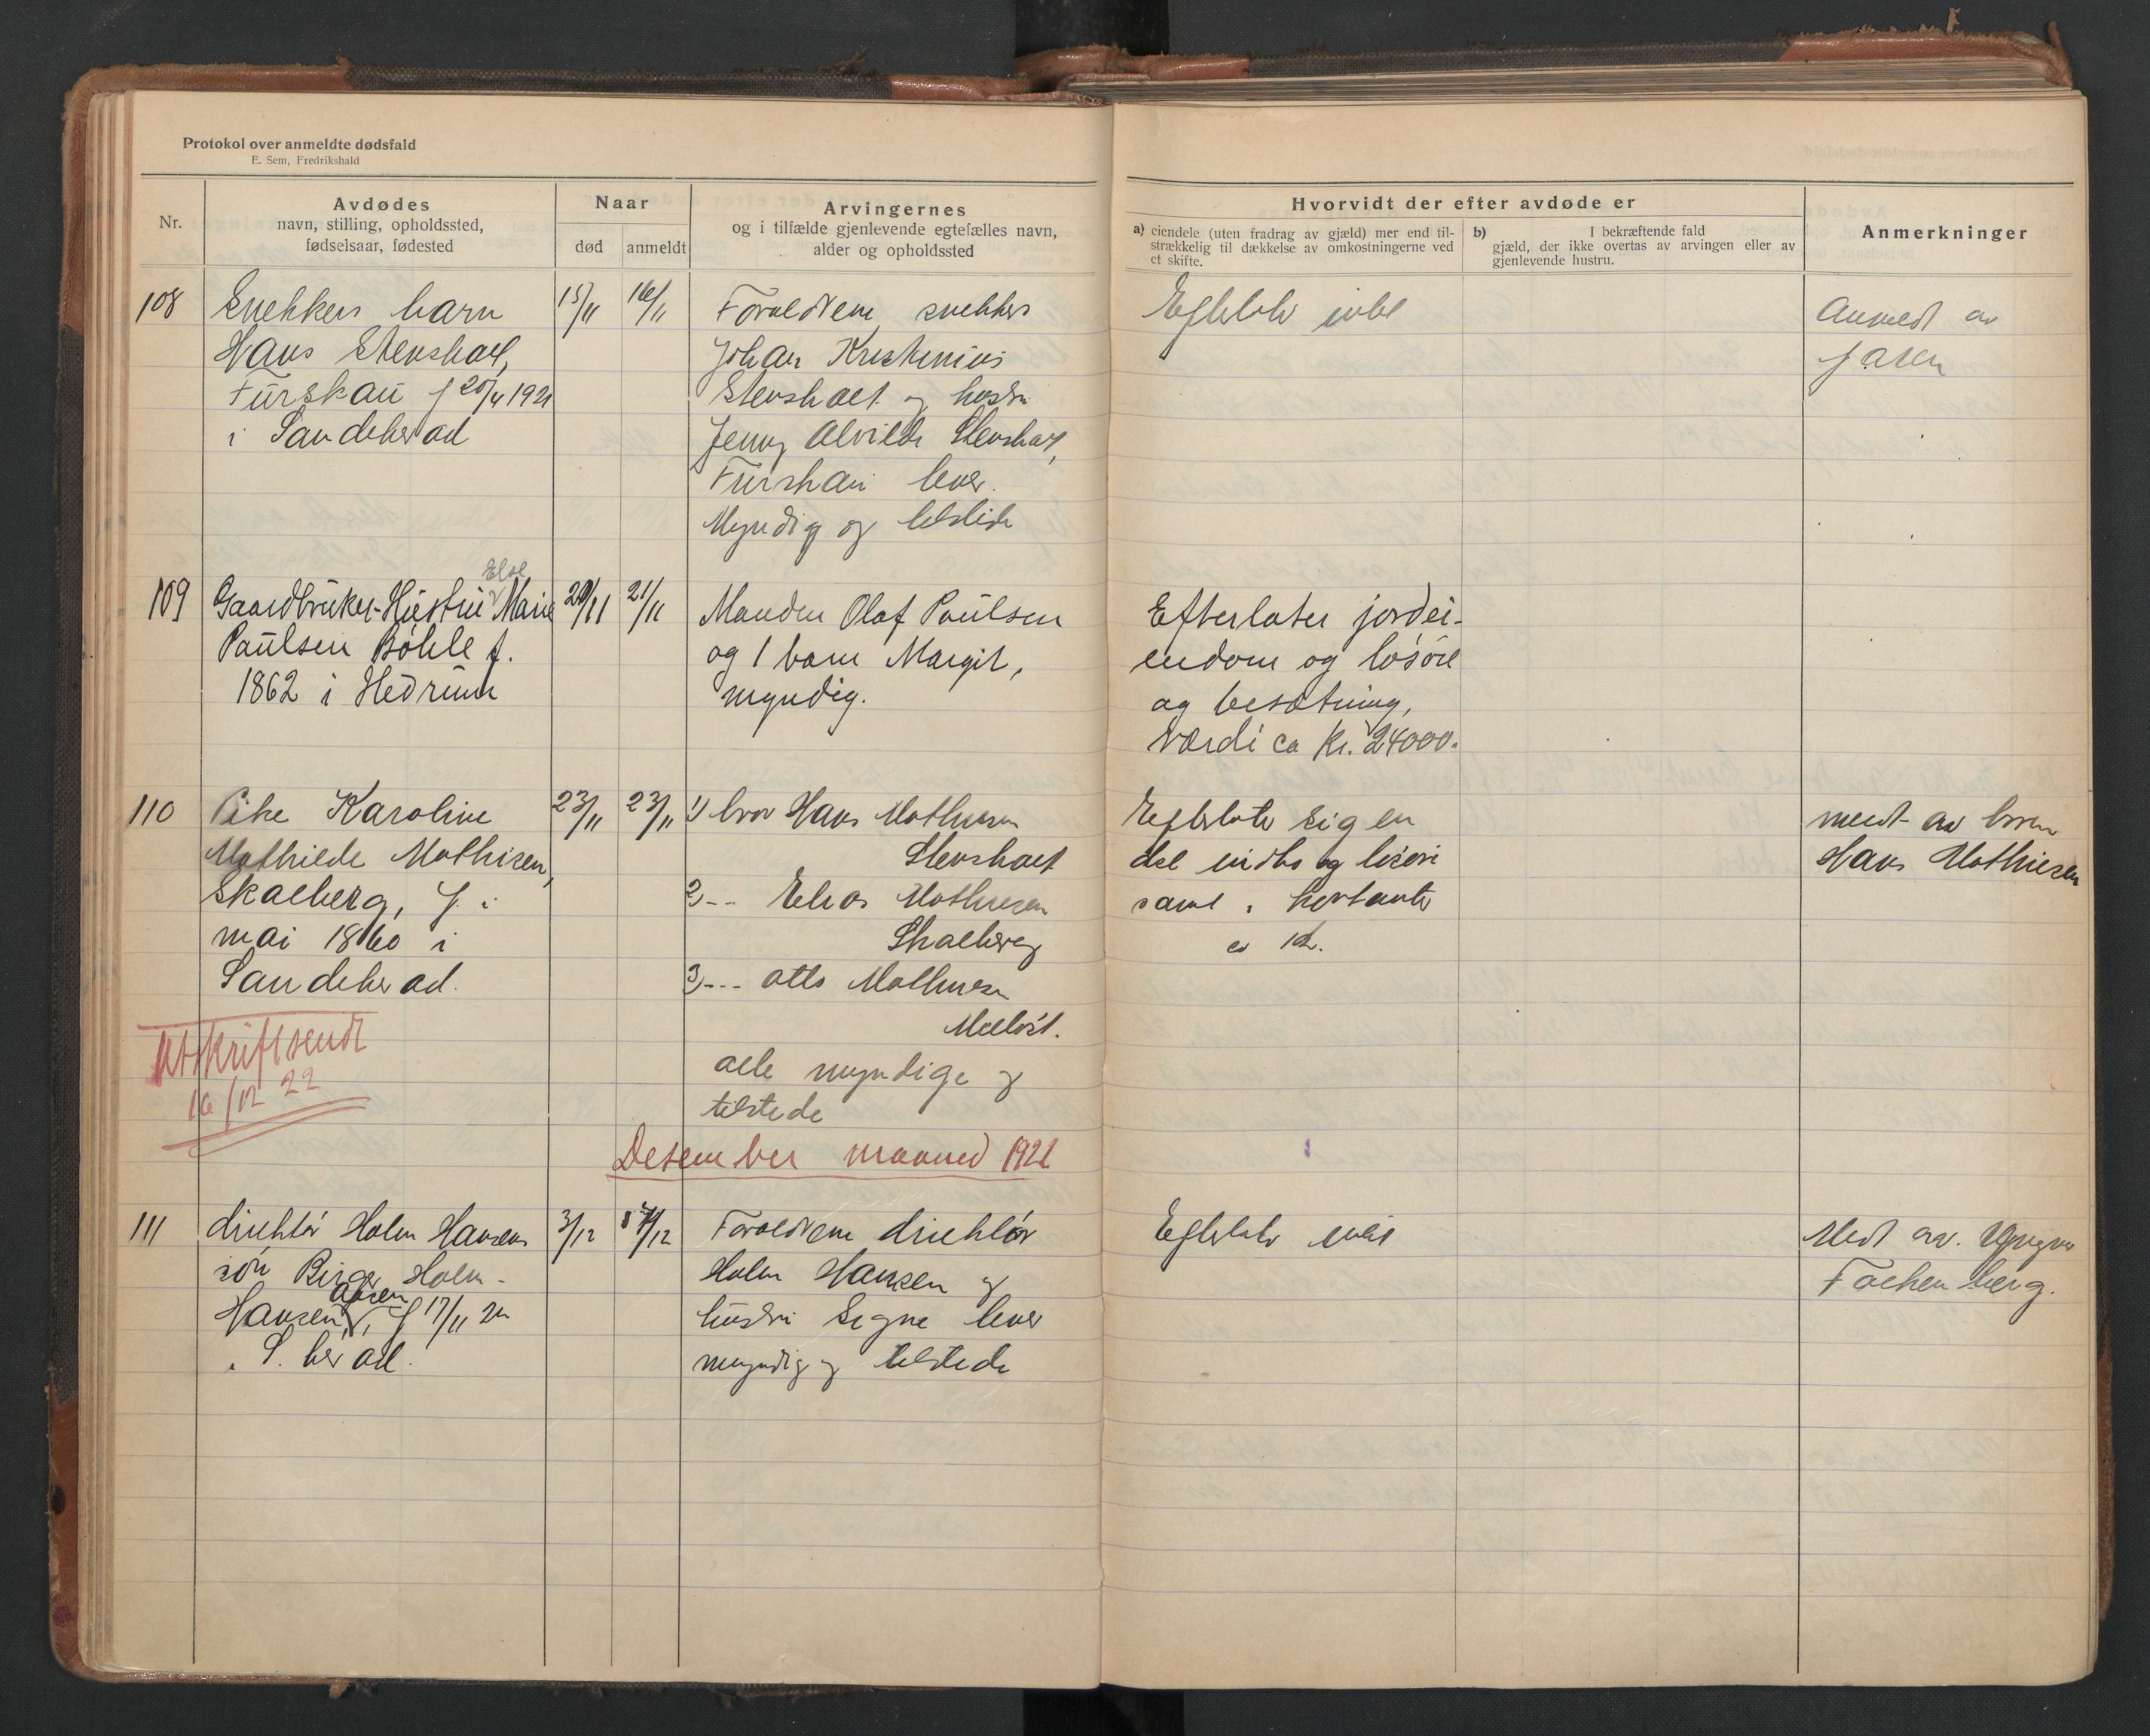 Protokol over anmeldte dødsfald
E. Sem, Fredrikshald
Nr.
Avdødes
navn, stilling, opholdssted,
fødselsaar, fødested
Naar
død
anmeldt
Arvingernes
og i tilfælde gjenlevende egtefælles navn,
alder og opholdssted
Hvorvidt der efter avdøde er
a) eiendele (uten fradrag av gjæld) mer end til-
strækkelig til dækkelse av omkostningerne ved
et skifte.
b) I bekræftende fald
gjæld, der ikke overtas av arvingen eller av
gjenlevende hustru.
Anmerkninger
108
Snekkers barn
Hans Stensholt,
Furskau f 25/4 1921
i Sandeherad
15/11
16/11
Foreldrene, snekker
Johan Kristenius
Stensholt og hustru
Jenny Alvilde Stensholt,
Furskau lever.
Myndig og tilstede
Efterlater intet
Anmeldt av
faren
109
Gaardbruker-Hustru Else Marie
Paulsen Bøhle f.
1862 i Hedrum
20/11
21/11
Manden Olaf Paulsen
og 1 barn Margit,
myndig.
Efterlater jordei-
endom og løsøre
og besætning,
Værdi ca kr. 24000.
110
Pike Karoline
Mathilde Mathisen,
Skalberg, f. i
mai 1860 i
Sandeherad.
23/11
23/11
1) bror Hans Mathisen
Stensholt
2) -- Elias Mathisen
Skalberg
3) --- Otto Mathisen
alle myndige og
tilstede
Efterlater sig en
del indbo og løsøre
samt i kontanter
ca kr.
meldt av broren
Hans Mathisen
Utskrift sendt
16/12 22
Desember maaned 1922
111
direktør Holm Hansens
søn Birger Holm-
Hansen, Aasen, f 17/11 22
i S. herad.
3/12
4/12
Foreldrene direktør
Holm Hansen og
hustru Signe lever
myndig og tilstede
Efterlater intet
Meldt av Yngvar
Falkenberg.